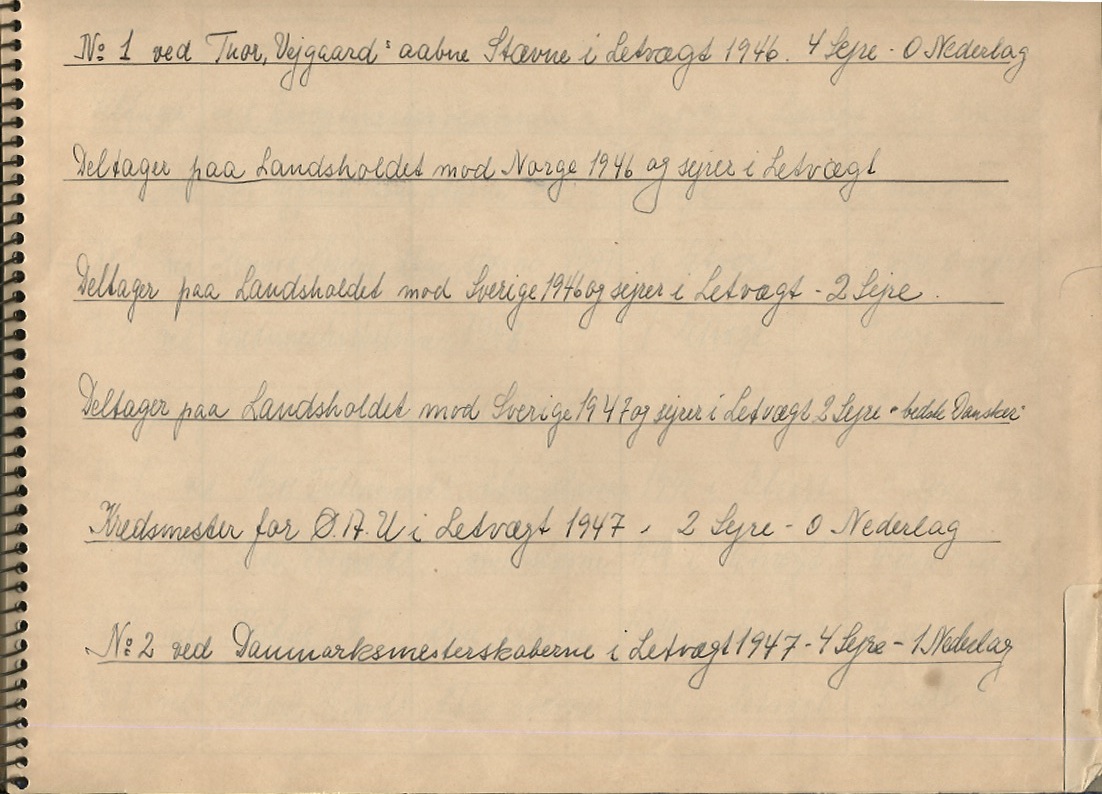 No 1 ved Thor, Vejgaard's aabne Stævne i Letvægt 1946. 4 Sejre - 0 Nederlag
Deltager paa Landsholdet mod Norge 1946 og sejrer i Letvægt
Deltager paa Landsholdet mod Sverige 1946 og sejrer i Letvægt - 2 Sejre.
Deltager paa Landsholdet mod Sverige 1947 og sejrer i Letvægt 2 Sejre "bedste Dansker"
Kredsmester for Ø.A.U i Letvægt 1947 - 2 Sejre - 0 Nederlag
No 2 ved Danmarksmesterskaberne i Letvægt 1947 - 4 Sejre - 1 Nederlag